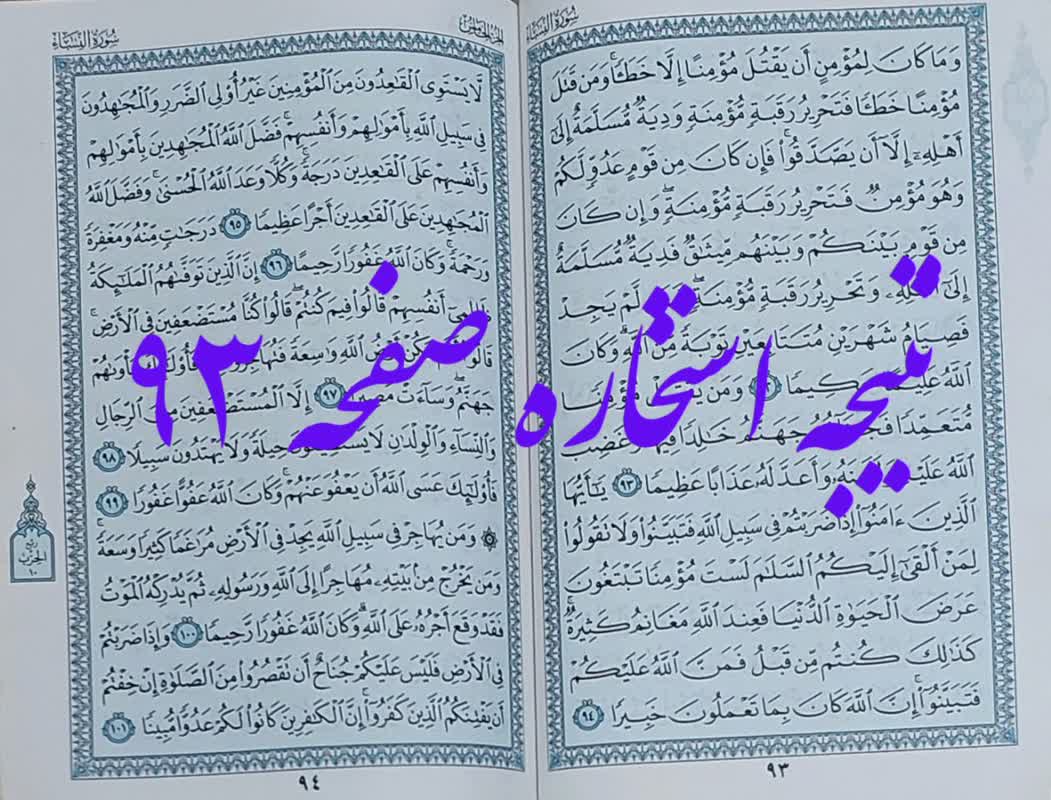 سورة النساء
وَمَا كَانَ لِمُؤْمِنٍ أَن يَقْتُلَ مُؤْمِنًا إِلَّا خَطَـًٔا وَمَن قَتَلَ
مُؤْمِنًا خَطَـًٔا فَتَحْرِيرُ رَقَبَةٍ مُّؤْمِنَةٍ وَدِيَةٌ مُّسَلَّمَةٌ إِلَىٰٓ
أَهْلِهِۦٓ إِلَّآ أَن يَصَّدَّقُوا۟ ۚ فَإِن كَانَ مِن قَوْمٍ عَدُوٍّ لَّكُمْ
وَهُوَ مُؤْمِنٌ فَتَحْرِيرُ رَقَبَةٍ مُّؤْمِنَةٍ ۖ وَإِن كَانَ
مِن قَوْمٍۭ بَيْنَكُمْ وَبَيْنَهُم مِّيثَٰقٌ فَدِيَةٌ مُّسَلَّمَةٌ
إِلَىٰٓ أَهْلِهِۦ وَتَحْرِيرُ رَقَبَةٍ مُّؤْمِنَةٍ ۖ لَّمْ يَجِدْ
فَصِيَامُ شَهْرَيْنِ مُتَتَابِعَيْنِ تَوْبَةً مِّنَ ٱللَّهِ ۗ وَكَانَ
ٱللَّهُ عَلِيمًا حَكِيمًا ٩٢ وَمَن يَقْتُلْ مُؤْمِنًا
مُّتَعَمِّدًا جَهَنَّمُ خَٰلِدًا فِيهَا وَغَضِبَ
ٱللَّهُ عَلَيْهِ وَلَعَنَهُۥ وَأَعَدَّ لَهُۥ عَذَابًا عَظِيمًا ٩٣ يَٰٓأَيُّهَا
ٱلَّذِينَ ءَامَنُوٓا۟ إِذَا ضَرَبْتُمْ فِى سَبِيلِ ٱللَّهِ فَتَبَيَّنُوا۟ وَلَا تَقُولُوا۟
لِمَنْ أَلْقَىٰٓ إِلَيْكُمُ ٱلسَّلَٰمَ لَسْتَ مُؤْمِنًا تَبْتَغُونَ
عَرَضَ ٱلْحَيَوٰةِ ٱلدُّنْيَا فَعِندَ ٱللَّهِ مَغَانِمُ كَثِيرَةٌ ۚ
كَذَٰلِكَ كُنتُم مِّن قَبْلُ فَمَنَّ ٱللَّهُ عَلَيْكُمْ
فَتَبَيَّنُوٓا۟ ۚ إِنَّ ٱللَّهَ كَانَ بِمَا تَعْمَلُونَ خَبِيرًا ٩٤
٩٣
الجزء الخامس
سورة النساء
لَّا يَسْتَوِى ٱلْقَٰعِدُونَ مِنَ ٱلْمُؤْمِنِينَ غَيْرُ أُو۟لِى ٱلضَّرَرِ وَٱلْمُجَٰهِدُونَ
فِى سَبِيلِ ٱللَّهِ بِأَمْوَٰلِهِمْ وَأَنفُسِهِمْ ۚ فَضَّلَ ٱللَّهُ ٱلْمُجَٰهِدِينَ بِأَمْوَٰلِهِمْ
وَأَنفُسِهِمْ عَلَى ٱلْقَٰعِدِينَ دَرَجَةً ۚ وَكُلًّا وَعَدَ ٱللَّهُ ٱلْحُسْنَىٰ ۚ وَفَضَّلَ ٱللَّهُ
ٱلْمُجَٰهِدِينَ عَلَى ٱلْقَٰعِدِينَ أَجْرًا عَظِيمًا ٩٥ دَرَجَٰتٍ مِّنْهُ وَمَغْفِرَةً
وَرَحْمَةً ۚ وَكَانَ ٱللَّهُ غَفُورًا رَّحِيمًا ٩٦ إِنَّ ٱلَّذِينَ تَوَفَّىٰهُمُ ٱلْمَلَٰٓئِكَةُ
ظَالِمِىٓ أَنفُسِهِمْ قَالُوا۟ فِيمَ كُنتُمْ ۖ قَالُوا۟ كُنَّا مُسْتَضْعَفِينَ فِى ٱلْأَرْضِ ۚ
قَالُوٓا۟ تَكُنْ أَرْضُ ٱللَّهِ وَٰسِعَةً فَتُهَاجِرُوا۟ فَأُو۟لَٰٓئِكَ مَأْوَىٰهُمْ
جَهَنَّمُ ۖ وَسَآءَتْ مَصِيرًا ٩٧ إِلَّا ٱلْمُسْتَضْعَفِينَ مِنَ ٱلرِّجَالِ
وَٱلنِّسَآءِ وَٱلْوِلْدَٰنِ لَا يَسْتَطِيعُونَ حِيلَةً وَلَا يَهْتَدُونَ سَبِيلًا ٩٨
فَأُو۟لَٰٓئِكَ عَسَى ٱللَّهُ أَن يَعْفُوَ عَنْهُمْ ۚ وَكَانَ ٱللَّهُ عَفُوًّا غَفُورًا ٩٩
۞ وَمَن يُهَاجِرْ فِى سَبِيلِ ٱللَّهِ يَجِدْ فِى ٱلْأَرْضِ مُرَٰغَمًا كَثِيرًا وَسَعَةً ۚ
وَمَن يَخْرُجْ مِنۢ بَيْتِهِۦ مُهَاجِرًا إِلَى ٱللَّهِ وَرَسُولِهِۦ ثُمَّ يُدْرِكْهُ ٱلْمَوْتُ
فَقَدْ وَقَعَ أَجْرُهُۥ عَلَى ٱللَّهِ ۗ وَكَانَ ٱللَّهُ غَفُورًا رَّحِيمًا ١٠٠ وَإِذَا ضَرَبْتُمْ
فِى ٱلْأَرْضِ فَلَيْسَ عَلَيْكُمْ جُنَاحٌ أَن تَقْصُرُوا۟ مِنَ ٱلصَّلَوٰةِ إِنْ خِفْتُمْ
أَن يَفْتِنَكُمُ ٱلَّذِينَ كَفَرُوٓا۟ ۚ إِنَّ ٱلْكَٰفِرِينَ كَانُوا۟ لَكُمْ عَدُوًّا مُّبِينًا ١٠١
٩٤
الحزب
١٠
نتیجه استخاره صفحه ۹۳